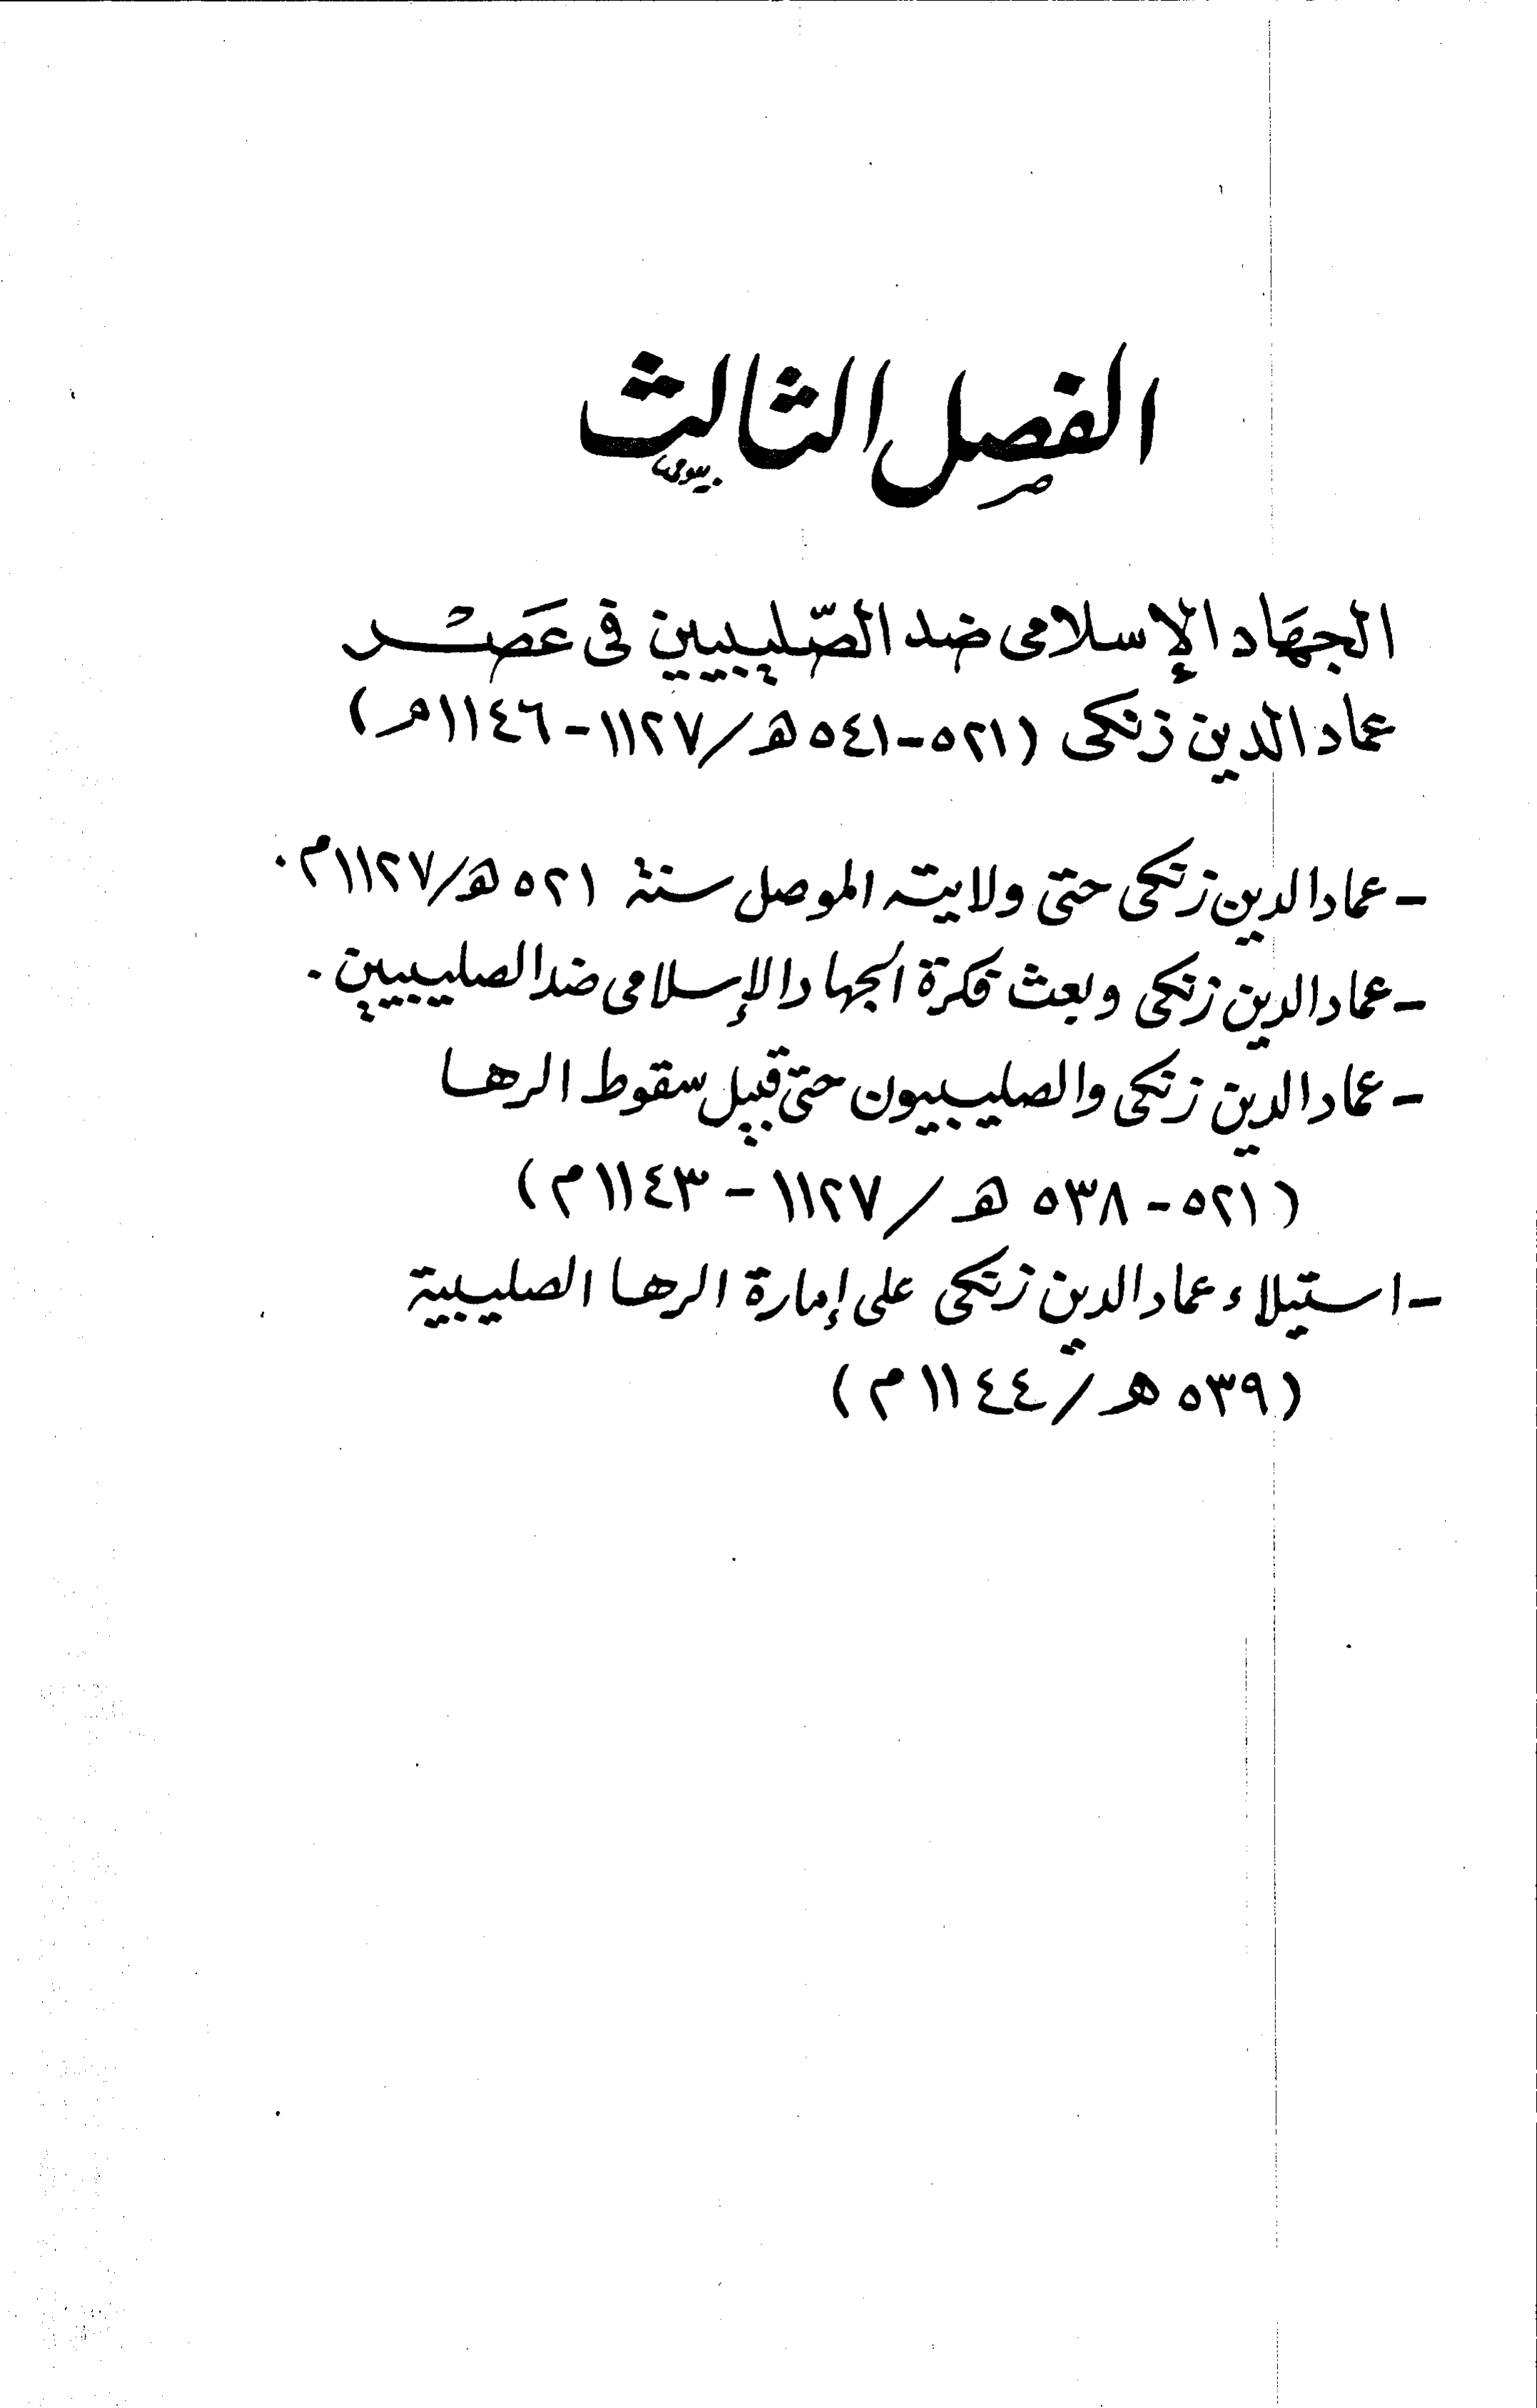 الفصل الثالث
الجهَاد الإسلامى ضد الصّليبيين فى عَصْر
عماد الدين زنكى (٥٢١-٥٤١هـ/١١٢٧-١١٤٦م)
- عماد الدين زنكى حتى ولايته الموصل سنة ٥٢١هـ/١١٢٧م.
- عماد الدين زنكى وبعث فكرة الجهاد الإسلامى ضد الصليبيين.
- عماد الدين زنكى والصليبيون حتى قبيل سقوط الرها
(٥٢١- ٥٣٨ هـ / ١١٢٧ - ١١٤٣م)
- استيلاء عماد الدين زنكى على إمارة الرها الصليبية
(٥٣٩ هـ / ١١٤٤م)